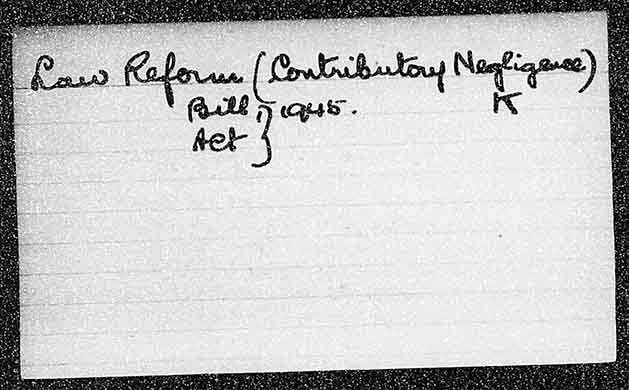 Law Reform (Contributory Negligence)
Bill, } 1945. K
Act }